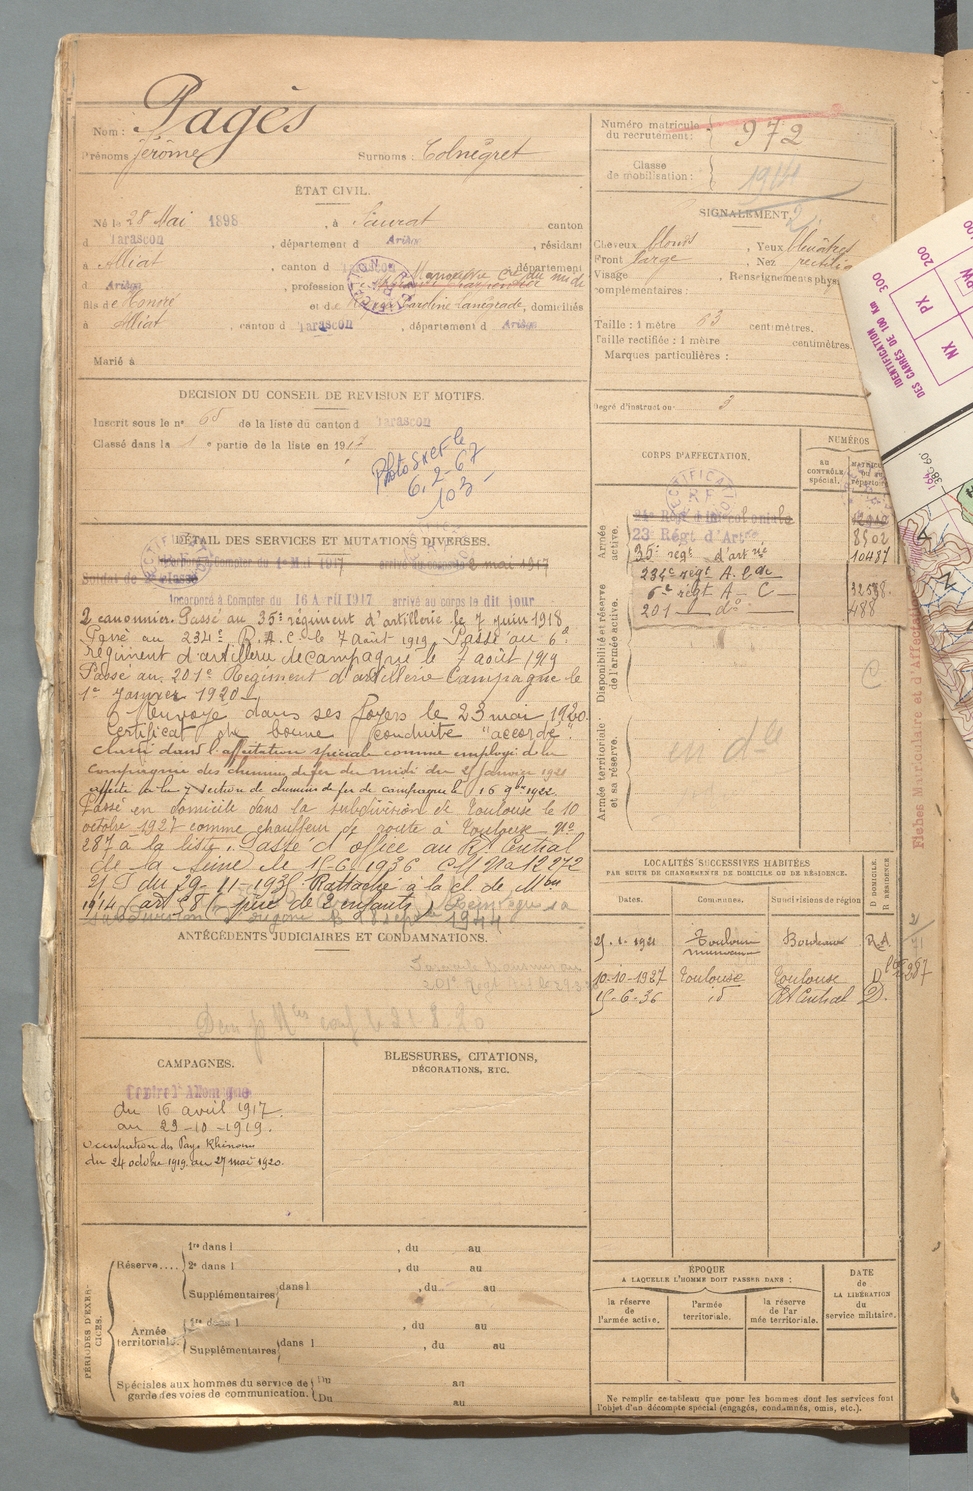 Nom : Pagès
Prénoms Jérôme Surnoms : Colnégret
ÉTAT CIVIL.
Né le 28 Mai 1898, à Saurat canton
d Tarascon, département d Ariège, résidant
à Alliat, canton d Tarascon département
d Ariège, profession Manœuvre Cie du midi
fils de Honoré et d Caroline Lanégrade, domiciliés
à Alliat, canton d Tarascon, département d Ariège
Marié à
DÉCISION DU CONSEIL DE REVISION ET MOTIFS.
Inscrit sous le n° 65 de la liste du canton d Tarascon
Classé dans la 1e partie de la liste en 1917
6.2-67
103 -
DÉTAIL DES SERVICES ET MUTATIONS DIVERSES.
Incorporé à Compter du 1er Mai 1917 arrivé au corps le 2 mai 1917
Soldat de 2e classe
Incorporé à Compter du 16 Avril 1917 arrivé au corps le dit jour
2 canonnier. Passé au 35e régiment d'artillerie le 7 juin 1918
Passé au 234e R.A.C. le 7 août 1919. Passé au 6e
Régiment d'artillerie de campagne le 7 août 1919
Passé au 201e Régiment d'artillerie Campagne le
1er Janvier 1920
Renvoyé dans ses foyers le 23 mai 1920.
Certificat de bonne conduite "accordé".
classé dans l'affectation spéciale comme employé de la
Compagnie des chemins de fer du midi du 25 Janvier 1921
affecté à la 7e section de chemins de fer de campagne le 16 9bre 1922.
Passé en domicile dans la subdivision de Toulouse le 10
octobre 1927 comme chauffeur de route à Toulouse No
287 à la liste. Passé d'office au Rt Central
de la Seine le 15-6-1936 No 12972
du 29-11-1935 Rattaché à la cl. de Mon
1914 art 58 père de 2 enfants.
1944
ANTÉCÉDENTS JUDICIAIRES ET CONDAMNATIONS.
CAMPAGNES.
Contre l'Allemagne
du 16 avril 1917.
au 23-10-1919.
Occupation des Pays Rhénans
du 24 octobre 1919 au 27 mai 1920.
BLESSURES, CITATIONS,
DÉCORATIONS, ETC.
PÉRIODES D'EXERCICES.
Réserve.... 1re dans l , du au
2e dans l , du au
Supplémentaires dans l , du au
Armée territoriale. 1re dans l , du au
Supplémentaires dans l , du au
Spéciales aux hommes du service de garde des voies de communication. Du au
Du au
Numéro matricule du recrutement : 972
Classe de mobilisation : 1914
SIGNALEMENT.
Cheveux blonds, Yeux bleuâtres
Front large, Nez rectiligne
Visage Renseignements phys
complémentaires :
Taille : 1 mètre 63 centimètres.
Taille rectifiée : 1 mètre centimètres.
Marques particulières :
Degré d'instruction 3
CORPS D'AFFECTATION.
NUMÉROS
au CONTRÔLE spécial.
Armée active.
24e Régt d'Infie coloniale
23e Régt d'Artie
35e régt d'artie 10487
234e régt
6e régt A-C- 32568
201 do 488
Disponibilité et réserve de l'armée active.
Armée territoriale et sa réserve.
LOCALITÉS SUCCESSIVES HABITÉES
PAR SUITE DE CHANGEMENTS DE DOMICILE OU DE RÉSIDENCE.
Dates. Communes. Subdivisions de région D DOMICILE. R RÉSIDENCE
25-1-1921 Toulouse Bordeaux
10-10-1927 Toulouse Toulouse D 287
15-6-36 id Rt Central D.
ÉPOQUE
A LAQUELLE L'HOMME DOIT PASSER DANS :
la réserve de l'armée active.
l'armée territoriale.
la réserve de l'armée territoriale.
DATE de LA LIBÉRATION du service militaire.
Ne remplir ce tableau que pour les hommes dont les services font
l'objet d'un décompte spécial (engagés, condamnés, omis, etc.).
IDENTIFICATION
DES CARRÉS DE 100 Km
300
200
PX
NX